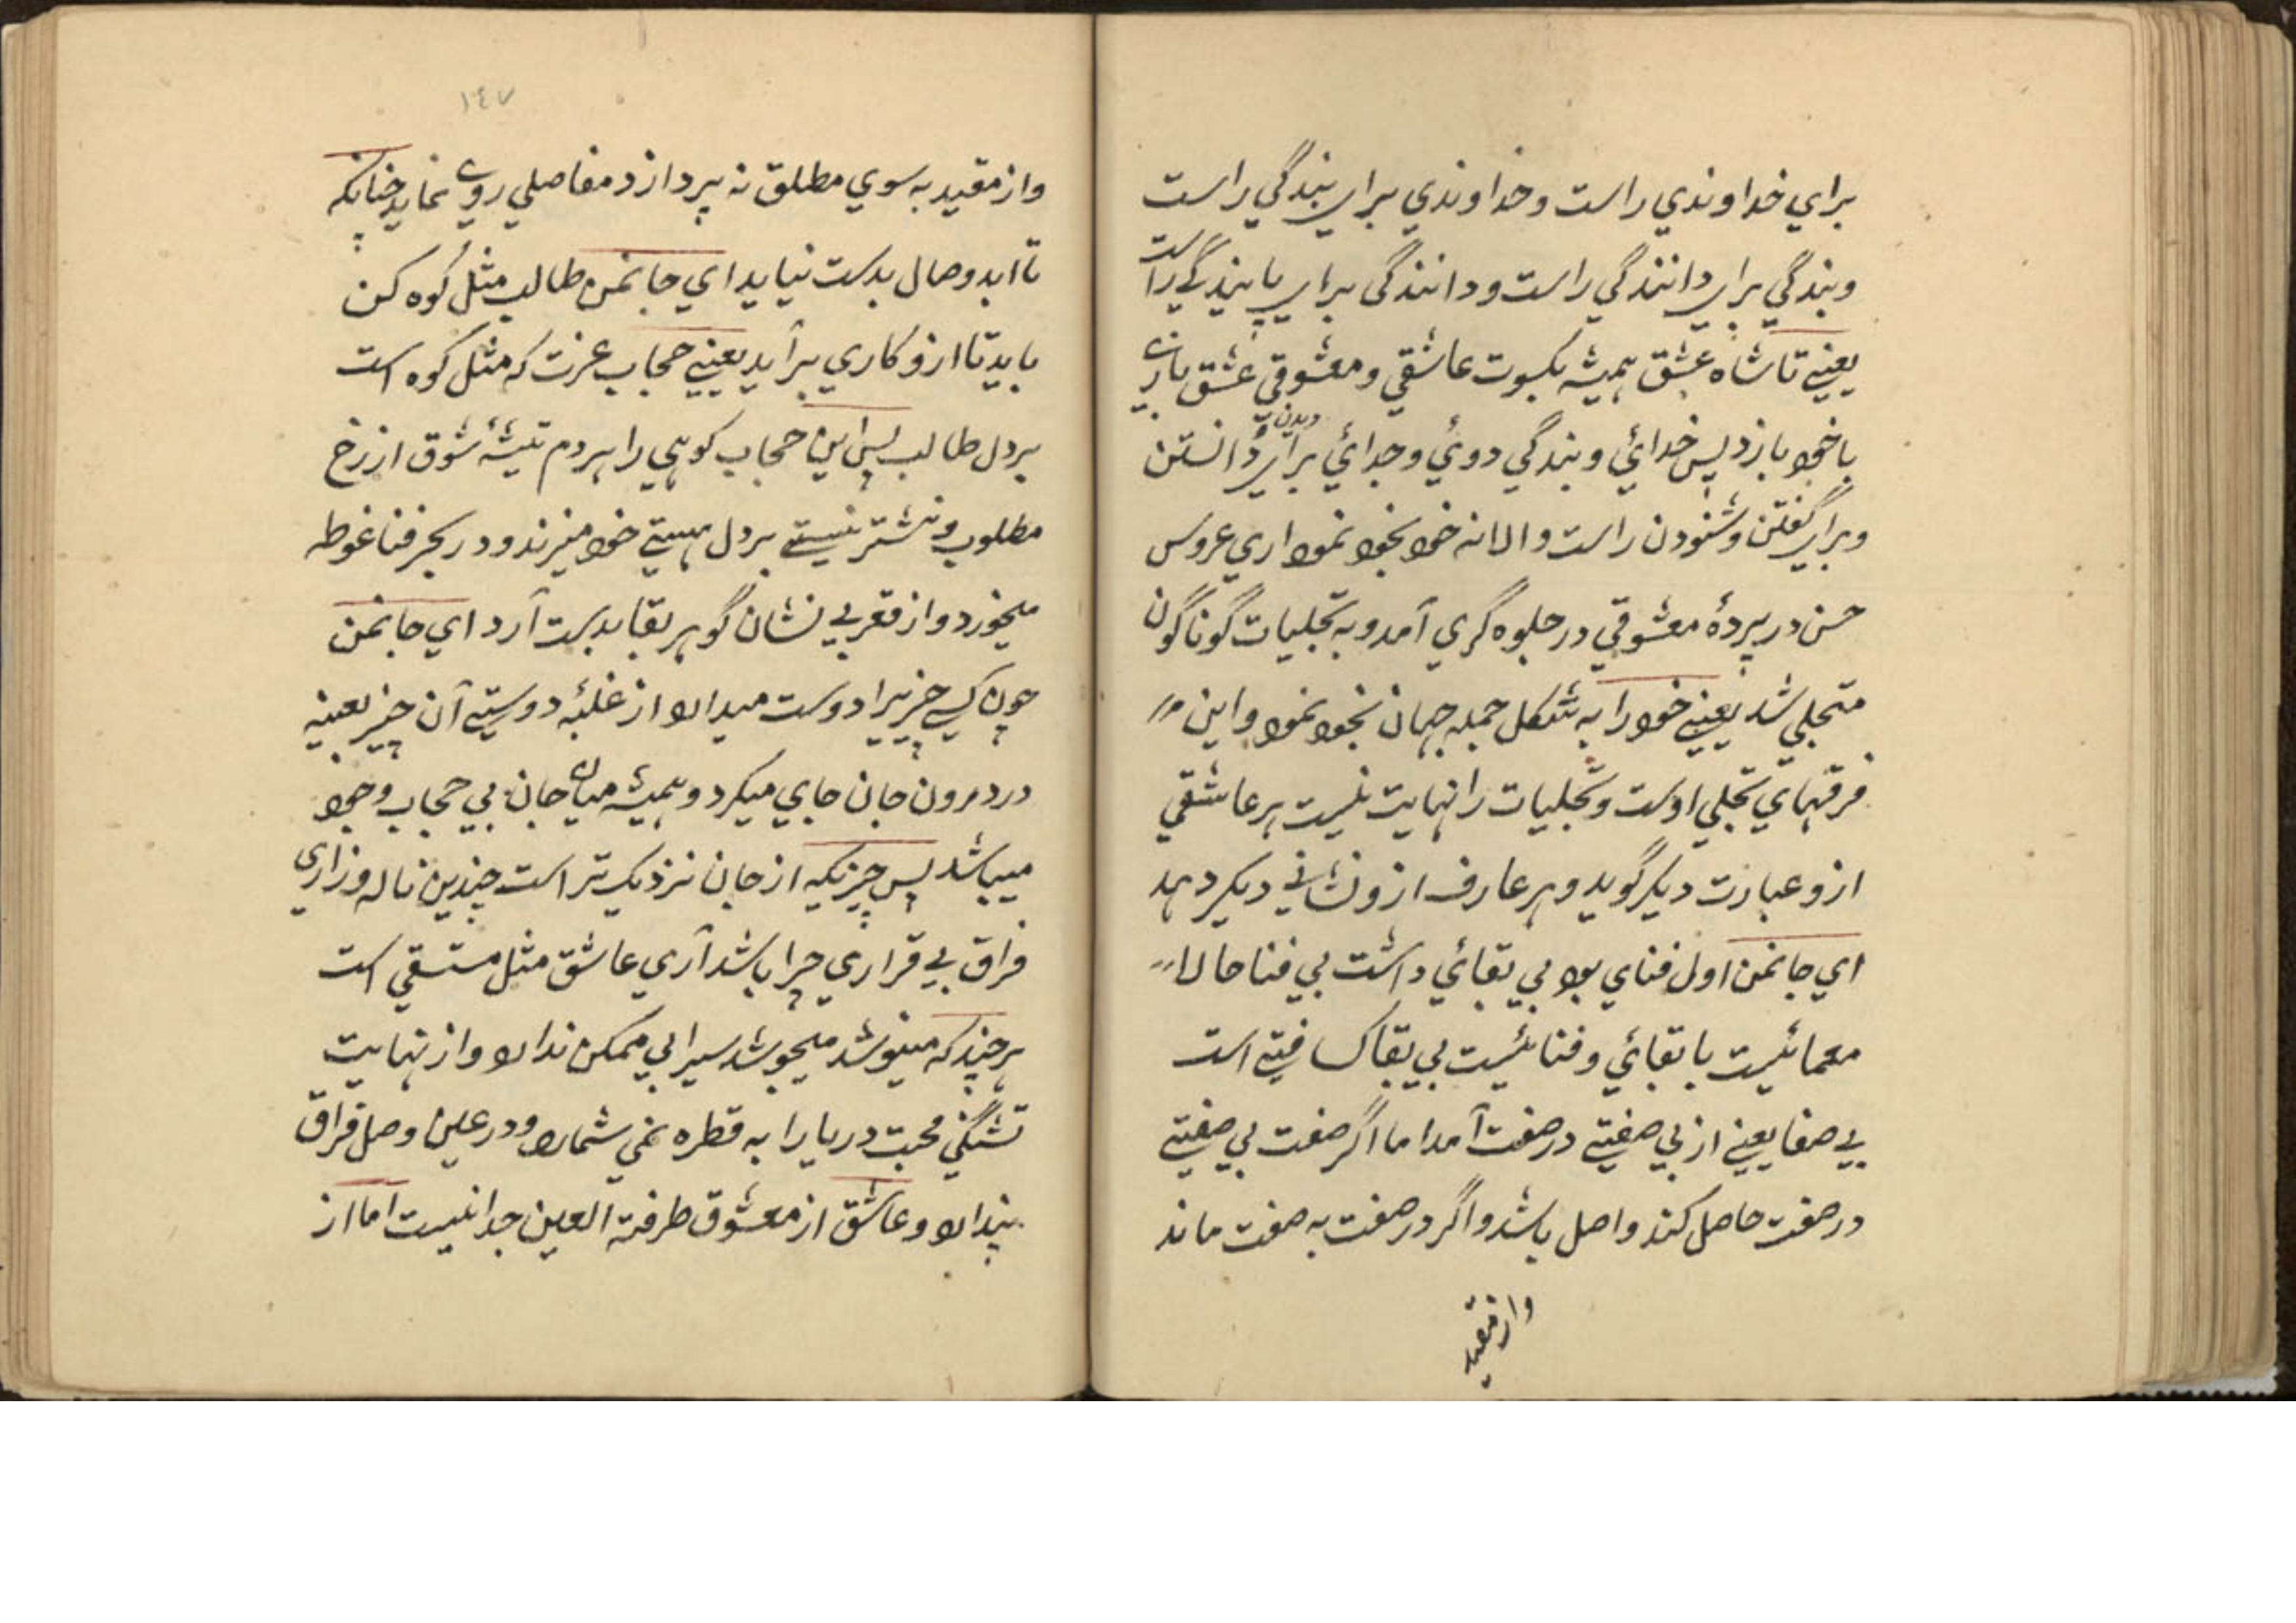 براي خداوندي راست وخداوندي براي بندگي راست
وبندگي براي دانندگي راست ودانندگي براي پايندگي راست
يعني تا شاه عشق هميشه بكسوت عاشقي ومعشوقي عشق بازي
با خود بازد پس خدائي وبندگي دوئي وجدائي براي ديدن دانستن
وبراي گفتن وشنودن راست والا نه خود بخود نمود اري عروس
حسن در پردهٔ معشوقي در جلوه گري آمد وبه تجليات گوناگون
متجلي شد يعني خود را به شكل جمله جهان بخود نمود واين
فرقهاي تجلي اوست وتجليات را نهايت نيست هر عاشقي
ازو عبارت ديگر گويد وهر عارف ازو نشاني ديگر دهد
اي جانمن اول فناي بود بي بقائي داشت بي فنا حالا
معمائيست با بقائي وفنائيست بي بقا كسا فتي است
بي صفا يعني از بي صفتي در صفت آمد اما اگر صفت بي صفتي
در صفت حاصل كند واصل باشد واگر در صفت به صفت ماند
واز مقيد
١٤٧
واز مقيد به سوي مطلق نه پردازد مفاصلي روي نمايد چنانكه
تا ابد وصال بدست نيايد اي جانمن طالب مثل كوه كن
بايد تا ازو كاري برآيد يعني حجاب عزت كه مثل كوه است
بر دل طالب پس اين حجاب كوهي را هر دم تيشهٔ شوق از رخ
مطلوب ونشتر نيستي بر دل هستي خود ميزند ودر بحر فنا غوطه
ميخورد واز قعر بي نشان گوهر بقا بدست آرد اي جانمن
چون كسي چيزيرا دوست ميدارد از غلبهٔ دوستي آن چيز بعينه
در درون جان جاي ميكرد وهميشه ميان جان بي حجاب وجود
ميباشد پس چيزيكه از جان نزديك تر است چندين ناله وزاري
فراق بي قراري چرا باشد آري عاشق مثل مستسقي است
هر چند كه مينوشد ميجوشد سيرابي ممكن ندارد واز نهايت
تشنگي محبت دريا را به قطره نمي شمارد ودر عين وصل فراق
پندارد وعاشق از معشوق طرفة العين جدا نيست اما از